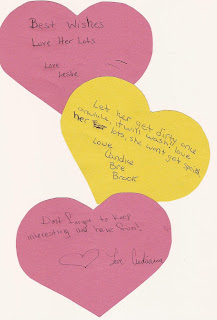 Best Wishes
Love Her Lots
Love
Leslie
Let her get dirty once
awhile, it will wash. Love
her lots, she won't get spoiled
Love
Candise
Bre
Brook
Don't forget to keep
interesting and have fun!
Love